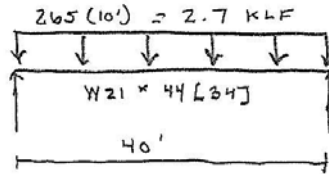 265 (10') = 2.7 KLF
W21 × 44 [34]
40'